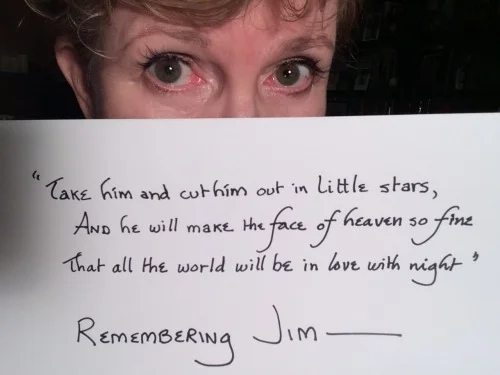 "Take him and cut him out in little stars,
And he will make the face of heaven so fine
That all the world will be in love with night"
Remembering Jim —